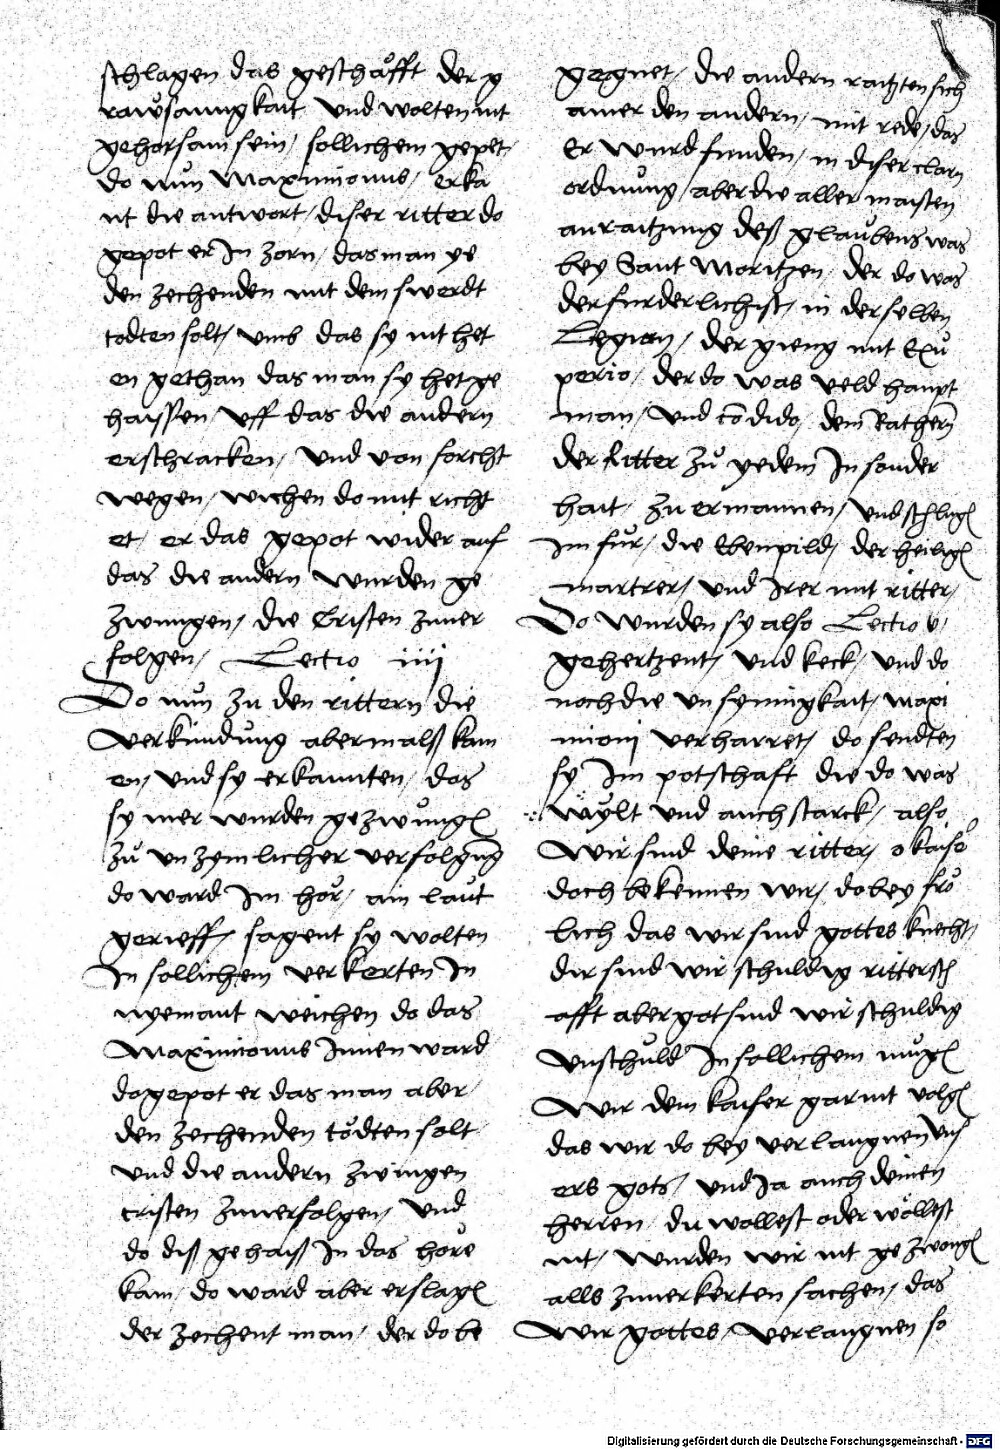 schlagen das geschåfft der g
rawsamigkait vnd wolten nit
gehorsam sein / sollichem gepet /
do nŭn Maximianus / erka
nt die antwort / diser ritter do
gepot er In zorn / das man ye
den zechenden mit dem swerdt
todten solt / vmb das sy nit het
en gethan das man sy het ge
haissen / vff das die andern
erschracken / vnd von forcht
wegen / wichen do mit richt
et / er das gepot wider auf
das die andern wurden ge
zwungen / die Cristen zuuer
folgen / Lectio iiij
Do nŭn zu den rittern die
verkŭndŭng abermalß kam
en / vnd sy erkannten / das
sy mer wurden gezwŭngen
zŭ vnzymlicher verfolgŭng
do ward Im hör / ain laŭt
gerieff / sagent sy wolten
In sollichem verkerten In
nyemant weichen do das
Maximianus Innen ward
do gepot er das man aber
den zechenden tödten solt
vnd die andern zwingen
cristen zuuerfolgen / vnd
do diß gehaiß In das höre
kam / do ward aber erslagen
der zechent man / der do be
gegnet / die andern raitzten sich
ainer den andern / mit rede / das
Er wurd funden / in diser clarn
ordnŭng / aber die aller maisten
anraitzung deß glaŭbens was
bey Sant Moritzen / der do was
der furderlichist / in derselben
Legion / der gieng mit Exŭ
perio / der do was veld haupt
man / vnd condido / dem Rathern
der Ritter zŭ yedem In sonder
hait / zu ermannen / vnd schlugen
im fŭr / die Ebenpild / der heiligen
martrer / vnd Irer mit ritter /
Do wurden sy also Lectio v /
gehertzent / vnd keck / vnd do
noch die vnsynnigkait / maxi
miani verharret / do sendten
sy Im potschaft die do was
wŭlt vnd auch starck / also
Wir sind deine ritter / o kaiser
doch bekennen wir / dobey frö
lich das wir sind gottes knecht /
dir sind wir schuldig rittersch
afft aber got sind wir schuldig
vnschuld In sollichem mŭgen
Wir dem kaiser gar nit volgen
das wir do bey verlaugnen vns
ers gots / vnd Ja auch deinen
herren / du wöllest oder wöllest
nit / wurden wir nit gezwongen
alls zuuerkerten sachen / das
Wir gottes / verlaugnen so
Digitalisierung gefördert durch die Deutsche Forschungsgemeinschaft - DFG